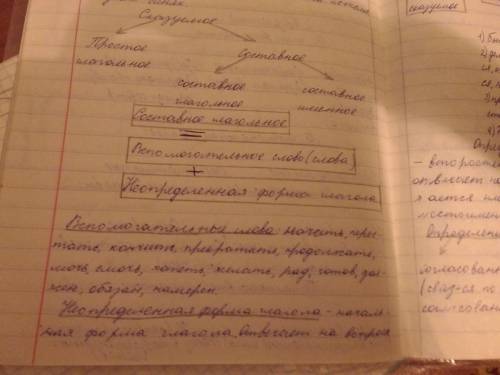 Сказуемое
Простое
глагольное
Составное
составное
глагольное
составное
именное
Составное глагольное
=
Вспомогательное слово (слова
+
Неопределенная форма глагола
Вспомогательные слова: начать, перес-
тать, кончить, прекратить, продолжать,
мочь, смочь, хотеть, желать, рад, готов, дол-
жен, обязан, намерен.
Неопределенная форма глагола - началь-
ная форма глагола. Отвечает на вопросы
сказуемое
1)
2)
3)
- второстеп
отвечает на
Определени
согласован
(связ-ся по
согласован